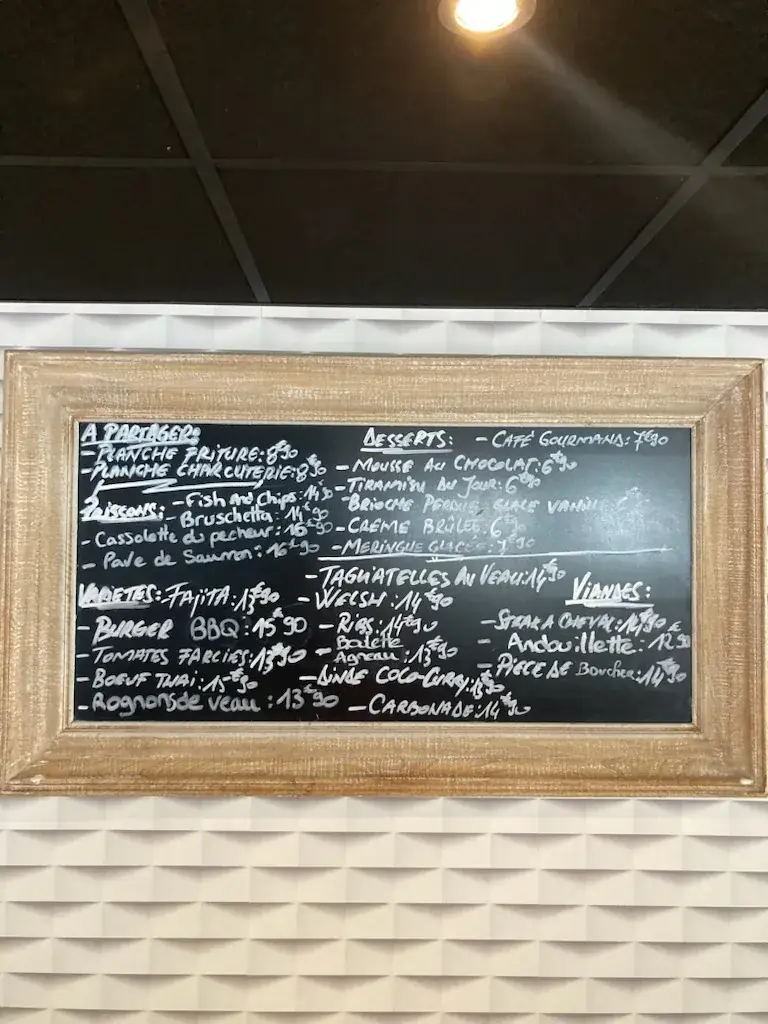 A PARTAGER:
- PLANCHE FRITURE: 8€90
- PLANCHE CHARCUTERIE: 8€90
POISSONS: - Fish And Chips: 14€90
- Bruschetta: 14€90
- Cassolette du pecheur: 16€90
- Pave de Saumon: 16€90
DESSERTS: - CAFÉ GOURMAND: 7€90
- MOUSSE AU CHOCOLAT: 6€90
- TIRAMISU DU JOUR: 6€90
- BRIOCHE PERDUE GLACE VANILLE
- CRÈME BRÛLÉE: 6€90
- MERINGUE GLACÉE: 7€90
VARIETES: - FAJITA: 13€90
- BURGER BBQ: 15€90
- TOMATES FARCIES: 13€90
- BOEUF THAI: 15€90
- Rognons de veau: 13€90
- TAGLIATELLES AU VEAU: 14€90
- WELSH: 14€90
- RIBS: 14€90
- Boulette
Agneau: 13€90
- DINDE COCO-CURRY: 13€90
- CARBONADE: 14€90
VIANDES:
- STEAK A CHEVAL: 14€90
- Andouillette: 12€90
- PIECE DE Boucher: 14€90